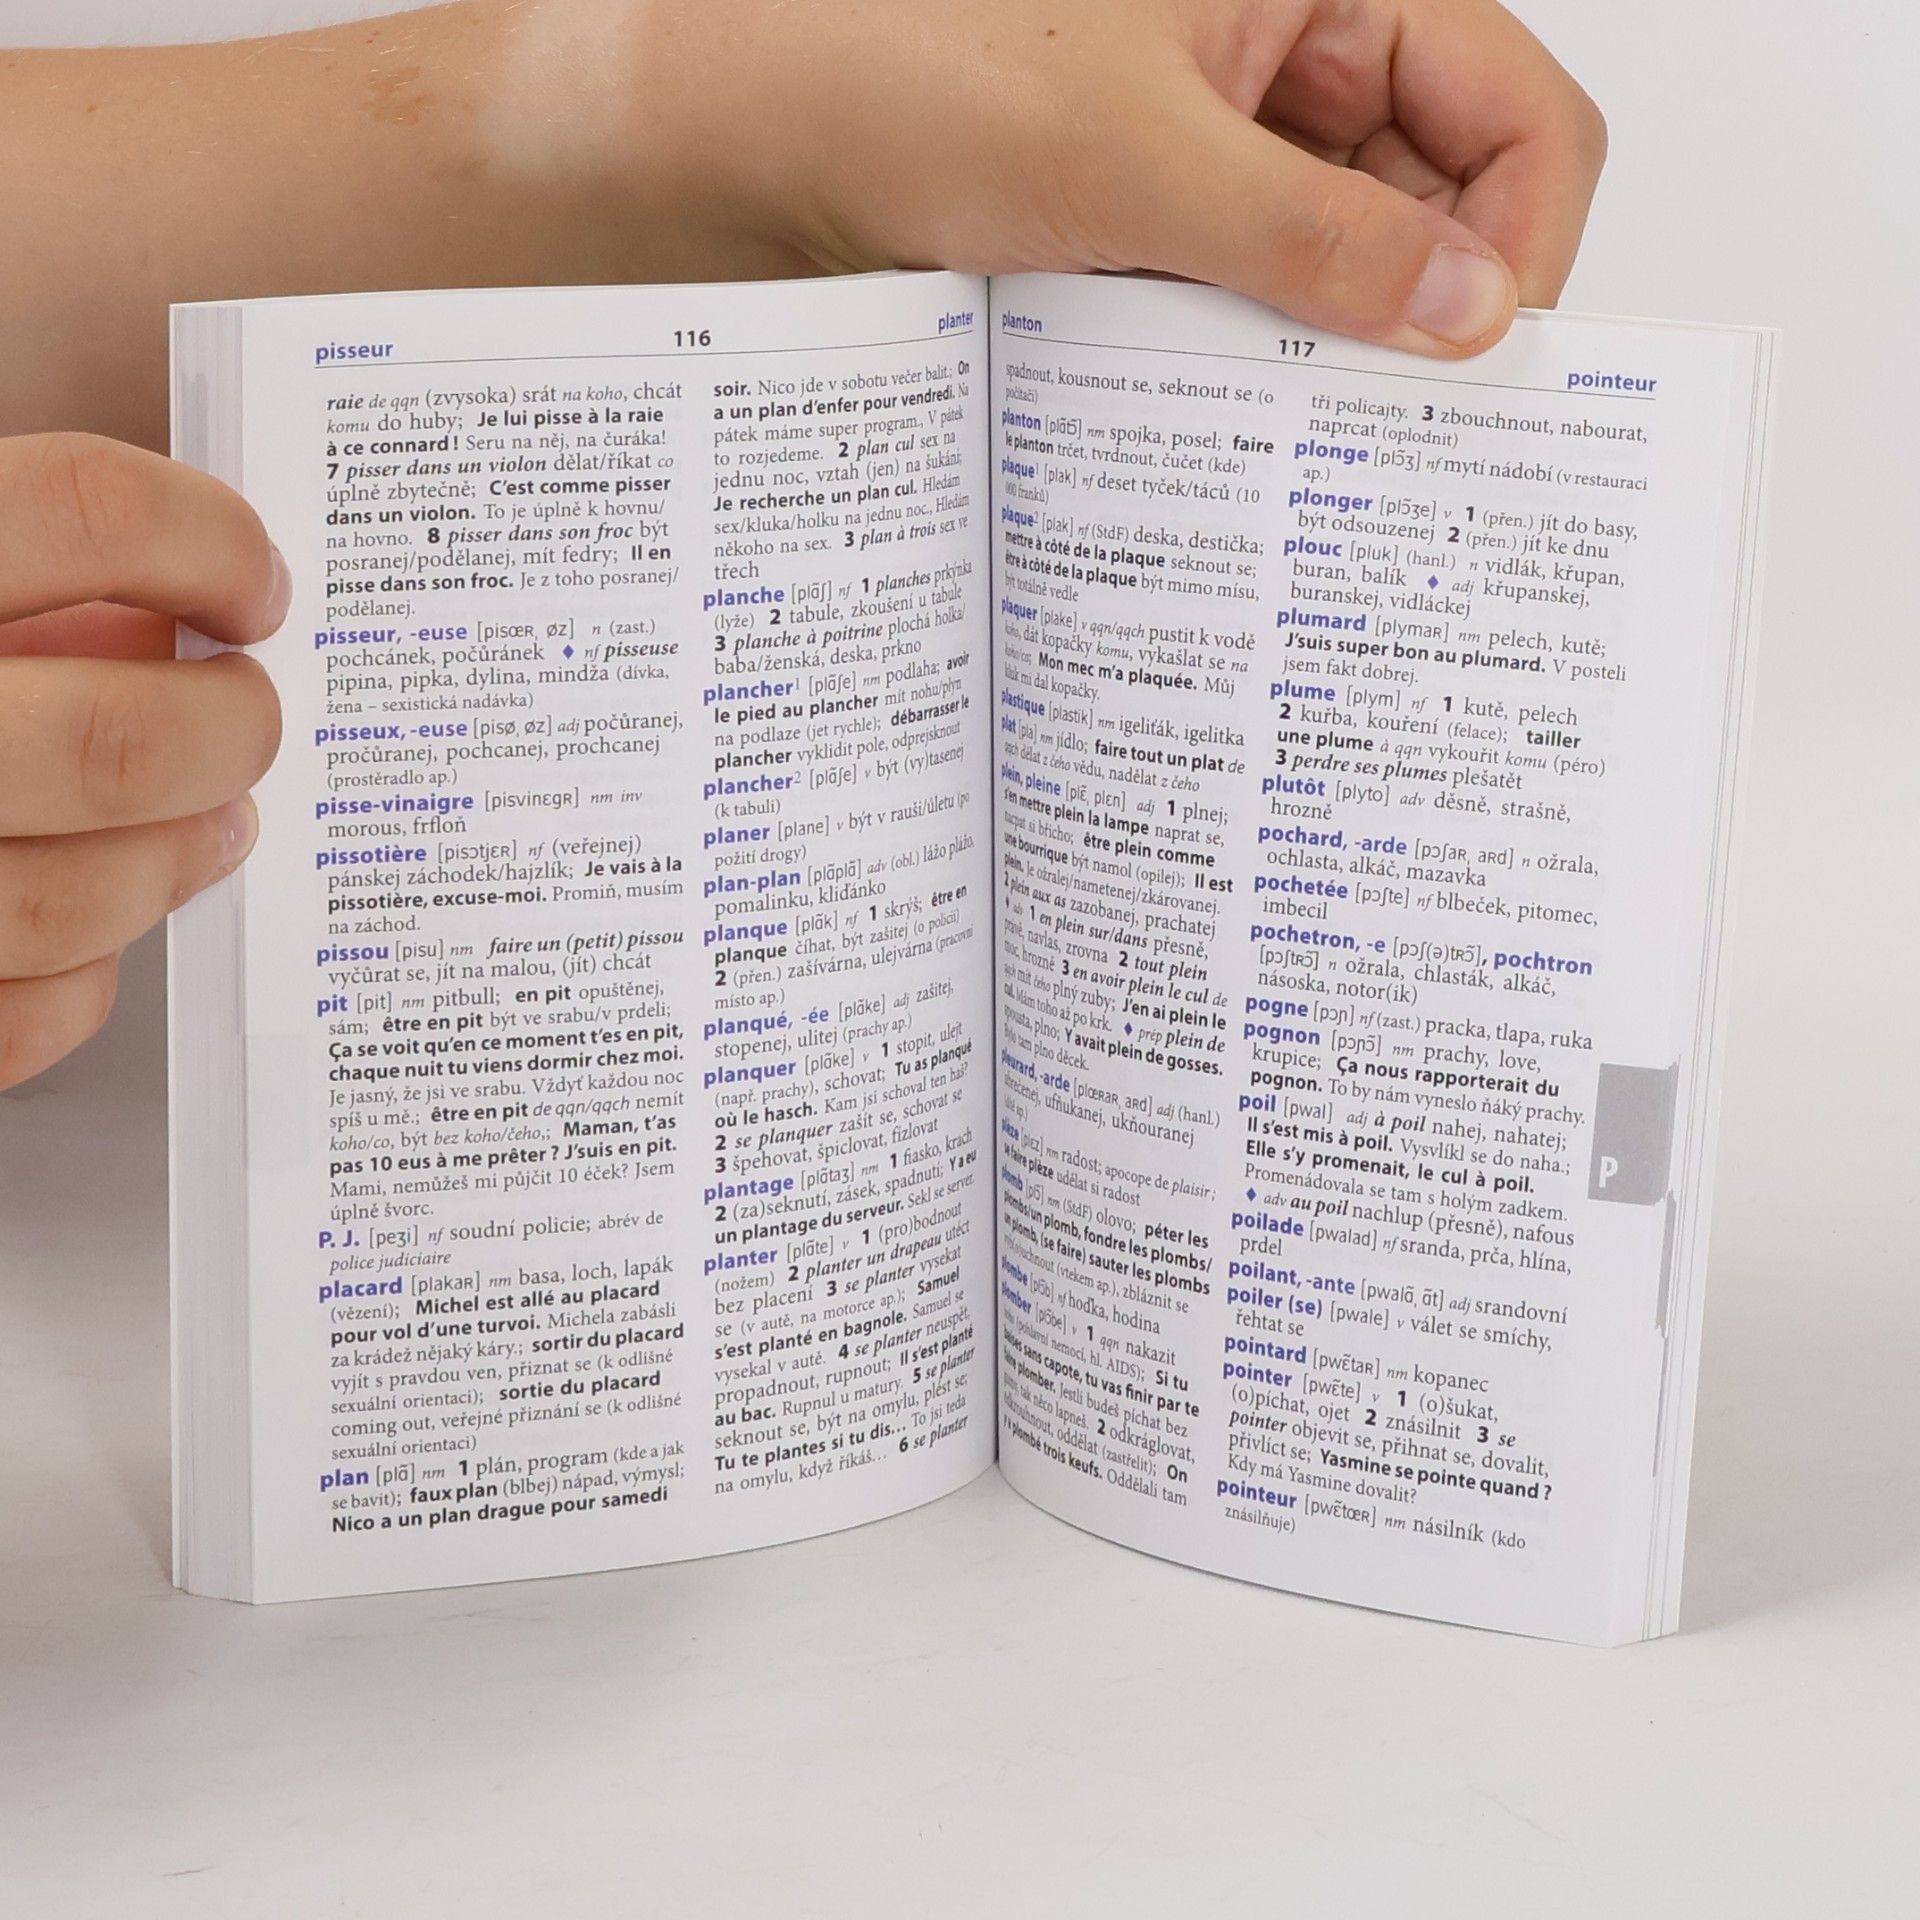 pisseur
116
planter
raie de qqn (zvysoka) srát na koho, chcát
komu do huby; Je lui pisse à la raie
à ce connard ! Seru na něj, na čuráka!
7 pisser dans un violon dělat/říkat co
úplně zbytečně; C’est comme pisser
dans un violon. To je úplně k hovnu/
na hovno. 8 pisser dans son froc být
posranej/podělanej, mít fedry; Il en
pisse dans son froc. Je z toho posranej/
podělanej.
pisseur, -euse [pisœʀ, øz] n (zast.)
pochcánek, počůránek ♦ nf pisseuse
pipina, pipka, dylina, mindža (dívka,
žena – sexistická nadávka)
pisseux, -euse [pisø, øz] adj počůranej,
pročůranej, pochcanej, prochcanej
(prostěradlo ap.)
pisse-vinaigre [pisvinɛgʀ] nm inv
morous, frfloň
pissotière [pisɔtjɛʀ] nf (veřejnej)
pánskej záchodek/hajzlík; Je vais à la
pissotière, excuse-moi. Promiň, musím
na záchod.
pissou [pisu] nm faire un (petit) pissou
vyčůrat se, jít na malou, (jít) chcát
pit [pit] nm pitbull; en pit opuštěnej,
sám; être en pit být ve srabu/v prdeli;
Ça se voit qu’en ce moment t’es en pit,
chaque nuit tu viens dormir chez moi.
Je jasný, že jsi ve srabu. Vždyť každou noc
spíš u mě.; être en pit de qqn/qqch nemít
koho/co, být bez koho/čeho,; Maman, t’as
pas 10 eus à me prêter ? J’suis en pit.
Mami, nemůžeš mi půjčit 10 éček? Jsem
úplně švorc.
P. J. [peʒi] nf soudní policie; abrév de
police judiciaire
placard [plakaʀ] nm basa, loch, lapák
(vězení); Michel est allé au placard
pour vol d’une turvoi. Michela zabásli
za krádež nějaký káry.; sortir du placard
vyjít s pravdou ven, přiznat se (k odlišné
sexuální orientaci); sortie du placard
coming out, veřejné přiznání se (k odlišné
sexuální orientaci)
plan [plɑ̃] nm 1 plán, program (kde a jak
se bavit); faux plan (blbej) nápad, výmysl;
Nico a un plan drague pour samedi
soir. Nico jde v sobotu večer balit.; On
a un plan d’enfer pour vendredi. Na
pátek máme super program., V pátek
to rozjedeme. 2 plan cul sex na
jednu noc, vztah (jen) na šukání;
Je recherche un plan cul. Hledám
sex/kluka/holku na jednu noc., Hledám
někoho na sex. 3 plan à trois sex ve
třech
planche [plɑ̃ʃ] nf 1 planches prkýnka
(lyže) 2 tabule, zkoušení u tabule
3 planche à poitrine plochá holka/
baba/ženská, deska, prkno
plancher¹ [plɑ̃ʃe] nm podlaha; avoir
le pied au plancher mít nohu/plyn
na podlaze (jet rychle); débarrasser le
plancher vyklidit pole, odprejsknout
plancher² [plɑ̃ʃe] v být (vy)tasenej
(k tabuli)
planer [plane] v být v rauši/úletu (po
požití drogy)
plan-plan [plɑ̃plɑ̃] adv (obl.) lážo plážo,
pomalinku, kliďánko
planque [plɑ̃k] nf 1 skrýš; être en
planque číhat, být zašitej (o policii)
2 (přen.) zašívárna, ulejvárna (pracovní
místo ap.)
planqué, -ée [plɑ̃ke] adj zašitej,
stopenej, ulitej (prachy ap.)
planquer [plɑ̃ke] v 1 stopit, ulejt
(např. prachy), schovat; Tu as planqué
où le hasch. Kam jsi schoval ten haš?
2 se planquer zašít se, schovat se
3 špehovat, špiclovat, fízlovat
plantage [plɑ̃taʒ] nm 1 fiasko, krach
2 (za)seknutí, zásek, spadnutí; Y a eu
un plantage du serveur. Sekl se server.
planter [plɑ̃te] v 1 (pro)bodnout
(nožem) 2 planter un drapeau utéct
bez placení 3 se planter vysekat
se (v autě, na motorce ap.); Samuel
s’est planté en bagnole. Samuel se
vysekal v autě. 4 se planter neuspět,
propadnout, rupnout; Il s’est planté
au bac. Rupnul u matury. 5 se planter
seknout se, být na omylu, plést se;
Tu te plantes si tu dis… To jsi teda
na omylu, když říkáš… 6 se planter
planton
117
pointeur
spadnout, kousnout se, seknout se (o
počítači)
planton [plɑ̃tɔ̃] nm spojka, posel; faire
le planton trčet, tvrdnout, čučet (kde)
plaque¹ [plak] nf deset tyček/táců (10
000 franků)
plaque² [plak] nf (StdF) deska, destička;
mettre à côté de la plaque seknout se;
être à côté de la plaque být mimo mísu,
být totálně vedle
plaquer [plake] v qqn/qqch pustit k vodě
koho, dát kopačky komu, vykašlat se na
koho/co; Mon mec m’a plaquée. Můj
kluk mi dal kopačky.
plastique [plastik] nm igeliťák, igelitka
plat [pla] nm jídlo; faire tout un plat de
qqch dělat z čeho vědu, nadělat z čeho
plein, pleine [plɛ̃, plɛn] adj 1 plnej;
s’en mettre plein la lampe naprat se,
nacpat si břicho; être plein comme
une bourrique být namol (opilej); Il est
plein. Je ožralej/nametenej/zkárovanej.
2 plein aux as zazobanej, prachatej
♦ adv 1 en plein sur/dans přesně,
právě, navlas, zrovna 2 tout plein
moc, hrozně 3 en avoir plein le cul de
qqch mít čeho plný zuby; J’en ai plein le
cul. Mám toho až po krk. ♦ prép plein de
spousta, plno; Y avait plein de gosses.
Bylo tam plno děcek.
pleurard, -arde [plœʀaʀ, aʀd] adj (hanl.)
ubrečenej, ufňukanej, ukňouranej
(dítě ap.)
plèze [plɛz] nm radost; apocope de plaisir ;
se faire plèze udělat si radost
plomb [plɔ̃] nm (StdF) olovo; péter les
plombs/un plomb, fondre les plombs/
un plomb, (se faire) sauter les plombs
vyb(o)uchnout (vztekem ap.), zbláznit se
plombe [plɔ̃b] nf hoďka, hodina
plomber [plɔ̃be] v 1 qqn nakazit
(pohlavní nemocí, hl. AIDS); Si tu
baises sans capote, tu vas finir par te
faire plomber. Jestli budeš píchat bez
gumy, tak něco lapneš. 2 odkráglovat,
odkrouhnout, oddělat (zastřelit); On
y a plombé trois keufs. Oddělali tam
tři policajty. 3 zbouchnout, nabourat,
naprcat (oplodnit)
plonge [plɔ̃ʒ] nf mytí nádobí (v restauraci
ap.)
plonger [plɔ̃ʒe] v 1 (přen.) jít do basy,
být odsouzenej 2 (přen.) jít ke dnu
plouc [pluk] (hanl.) n vidlák, křupan,
buran, balík ♦ adj křupanskej,
buranskej, vidláckej
plumard [plymaʀ] nm pelech, kutě;
J’suis super bon au plumard. V posteli
jsem fakt dobrej.
plume [plym] nf 1 kutě, pelech
2 kuřba, kouření (felace); tailler
une plume à qqn vykouřit komu (péro)
3 perdre ses plumes plešatět
plutôt [plyto] adv děsně, strašně,
hrozně
pochard, -arde [pɔʃaʀ, aʀd] n ožrala,
ochlasta, alkáč, mazavka
pochetée [pɔʃte] nf blbeček, pitomec,
imbecil
pochetron, -e [pɔʃ(ə)tʀɔ̃], pochtron
[pɔʃtʀɔ̃] n ožrala, chlasták, alkáč,
násoska, notor(ik)
pogne [pɔɲ] nf (zast.) pracka, tlapa, ruka
pognon [pɔɲɔ̃] nm prachy, love,
krupice; Ça nous rapporterait du
pognon. To by nám vyneslo ňáký prachy.
poil [pwal] adj à poil nahej, nahatej;
Il s’est mis à poil. Vysvlíkl se do naha.;
Elle s’y promenait, le cul à poil.
Promenádovala se tam s holým zadkem.
♦ adv au poil nachlup (přesně), nafous
poilade [pwalad] nf sranda, prča, hlína,
prdel
poilant, -ante [pwalɑ̃, ɑ̃t] adj srandovní
poiler (se) [pwale] v válet se smíchy,
řehtat se
pointard [pwɛ̃taʀ] nm kopanec
pointer [pwɛ̃te] v 1 (o)šukat,
(o)píchat, ojet 2 znásilnit 3 se
pointer objevit se, přihnat se, dovalit,
přivlíct se; Yasmine se pointe quand ?
Kdy má Yasmine dovalit?
pointeur [pwɛ̃tœʀ] nm násilník (kdo
znásilňuje)
P